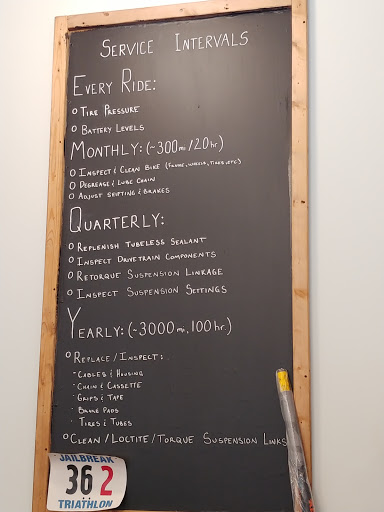 SERVICE INTERVALS
EVERY RIDE:
O TIRE PRESSURE
O BATTERY LEVELS
MONTHLY: (~300mi/20hr)
O INSPECT & CLEAN BIKE (FRAME, WHEELS, TIRES, ETC)
O DEGREASE & LUBE CHAIN
O ADJUST SHIFTING & BRAKES
QUARTERLY:
O REPLENISH TUBELESS SEALANT
O INSPECT DRIVETRAIN COMPONENTS
O RETORQUE SUSPENSION LINKAGE
O INSPECT SUSPENSION SETTINGS
YEARLY: (~3000mi, 100hr)
O REPLACE/INSPECT:
- CABLES & HOUSING
- CHAIN & CASSETTE
- GRIPS & TAPE
- BRAKE PADS
- TIRES & TUBES
O CLEAN/LOCTITE/TORQUE SUSPENSION LINKS
JAILBREAK
362
TRIATHLON